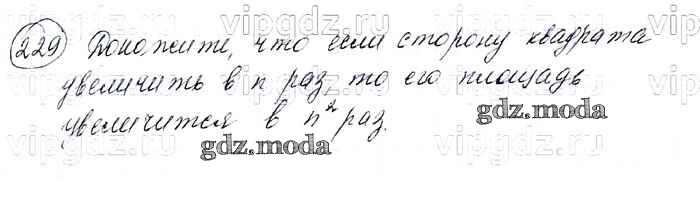 229 Докожите, что если сторону квадрата
увеличить в n раз, то его площадь
увеличится в n² раз.
gdz.moda
gdz.moda